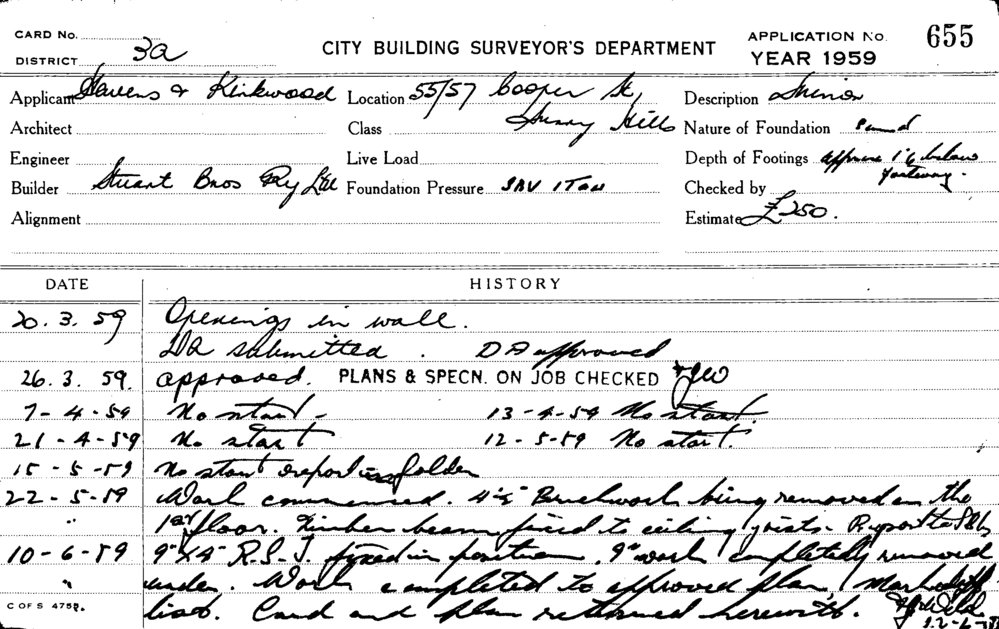 CARD No.
DISTRICT 3a
CITY BUILDING SURVEYOR'S DEPARTMENT
APPLICATION No. 655
YEAR 1959
Applicant & Kirkwood
Location 55/57 Cooper St,
Surry Hills
Description Minor
Architect
Class
Nature of Foundation Sand
Engineer
Live Load
Depth of Footings approx 1'6 below
footway.
Builder Stuart Bros Pty Ltd
Foundation Pressure 1 TON
Checked by
Alignment
Estimate £250.
DATE HISTORY
20.3.59 Openings in wall.
DA submitted. DA approved
26.3.59. approved. PLANS & SPECN. ON JOB CHECKED
7-4-59 No start - 13-4-59 No start.
21-4-59 No start 12-5-59 No start.
15-5-59 No start report in folder
22-5-59 Work commenced. 4½" Brickwork being removed on the
" 1st floor. Timber beam fixed to ceiling joists. Report to
10-6-59 9"x4" R.S.J. fixed in position. 9" work completely removed
" under. Work completed to approved plan. Marked off
list. Card and plan returned herewith.
C OF S 4758.
12-6-59